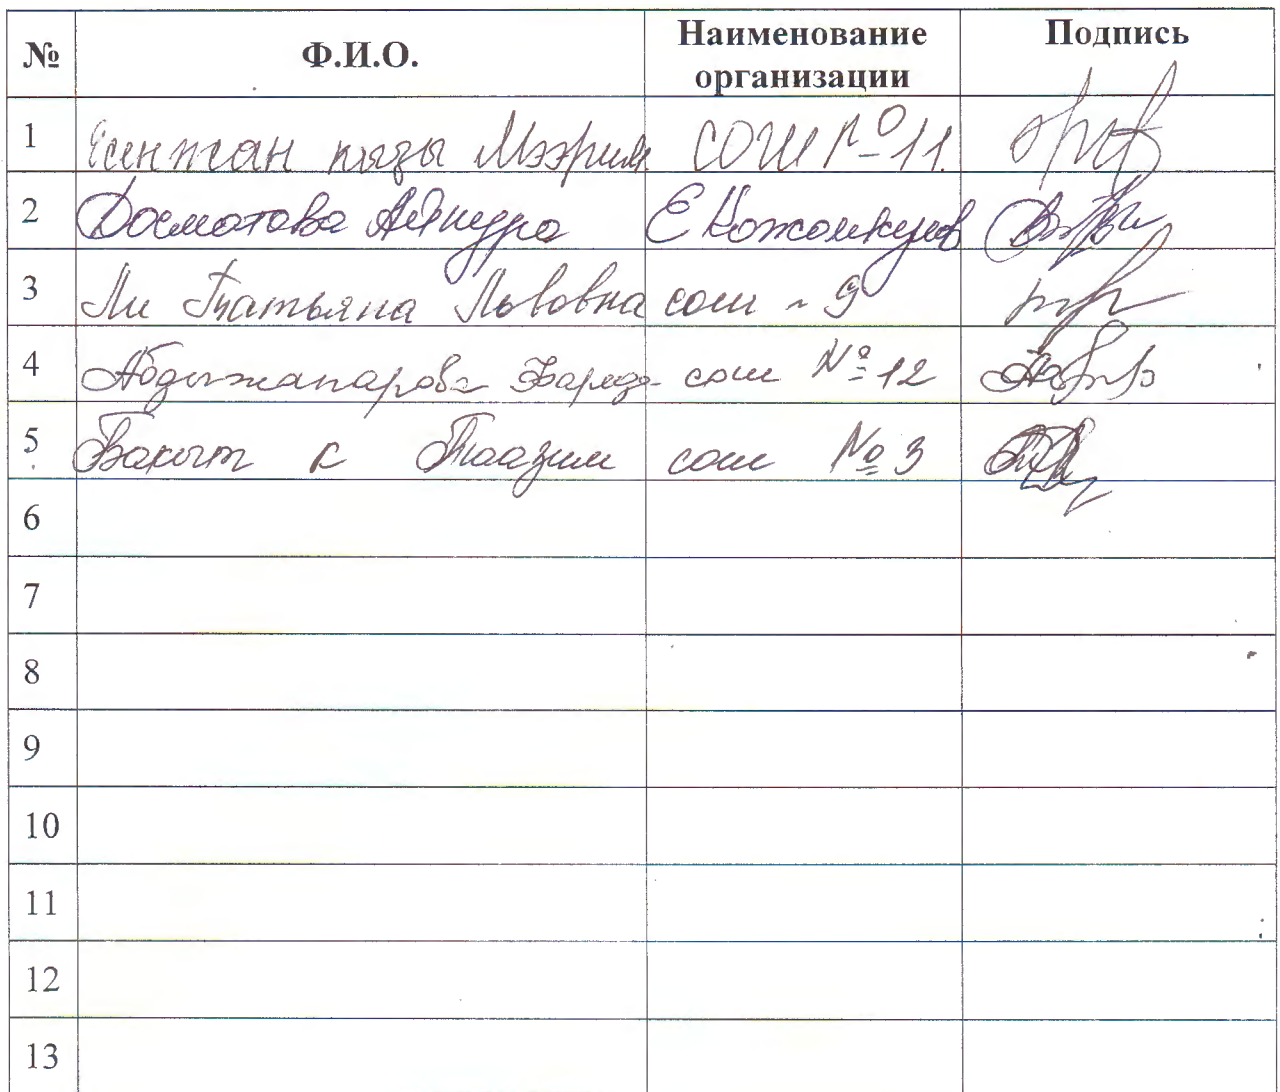 № Ф.И.О. Наименование организации Подпись
1 Усенжан кызы Мээрим СОШ № 11.
2 Досматова Айнура Е Кожомкулов
3 Ли Татьяна Львовна сош ~ 9
4 Абдыжапарова Фарида сош № 12
5 Бакыт к Таазим сош № 3
6
7
8
9
10
11
12
13